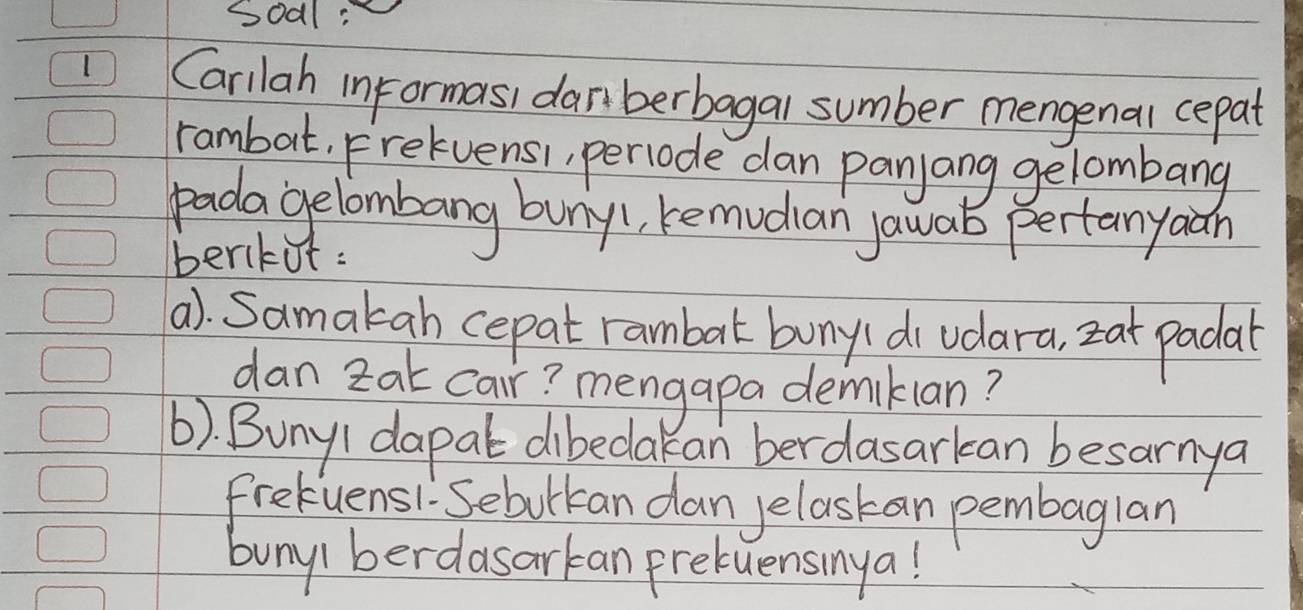 Soal :
1 Carilah informasi dari berbagai sumber mengenai cepat
rambat, Frekuensi, periode dan panjang gelombang
pada gelombang bunyi, kemudian jawab pertanyaan
berikut :
a). Samakah cepat rambat bunyi di udara, zat padat
dan zat cair? mengapa demikian?
b). Bunyi dapat dibedakan berdasarkan besarnya
Frekuensi. Sebutkan dan jelaskan pembagian
bunyi berdasarkan frekuensinya!